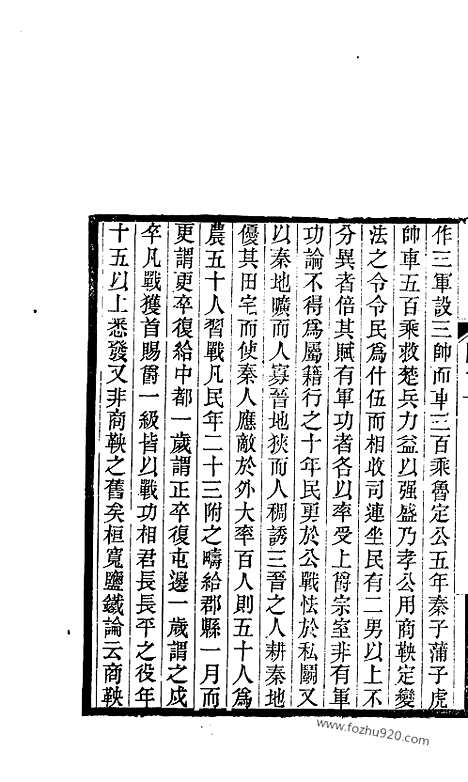 作三軍設三帥而車三百乘魯定公五年秦子蒲子虎
帥車五百乘救楚兵力益以强盛乃孝公用商鞅定變
法之令令民爲什伍而相收司連坐民有二男以上不
分異者倍其賦有軍功者各以率受上爵宗室非有軍
功論不得爲屬籍行之十年民勇於公戰怯於私鬭又
以秦地曠而人寡晉地狹而人稠誘三晉之人耕秦地
優其田宅而使秦人應敵於外大率百人則五十人爲
農五十人習戰凡民年二十三附之疇給郡縣一月而
更謂更卒復給中都一歲謂正卒復屯邊一歲謂之戍
卒凡戰獲首賜爵一級皆以戰功相君長長平之役年
十五以上悉發又非商鞅之舊矣桓寬鹽鐵論云商鞅
www.fozhu920.com